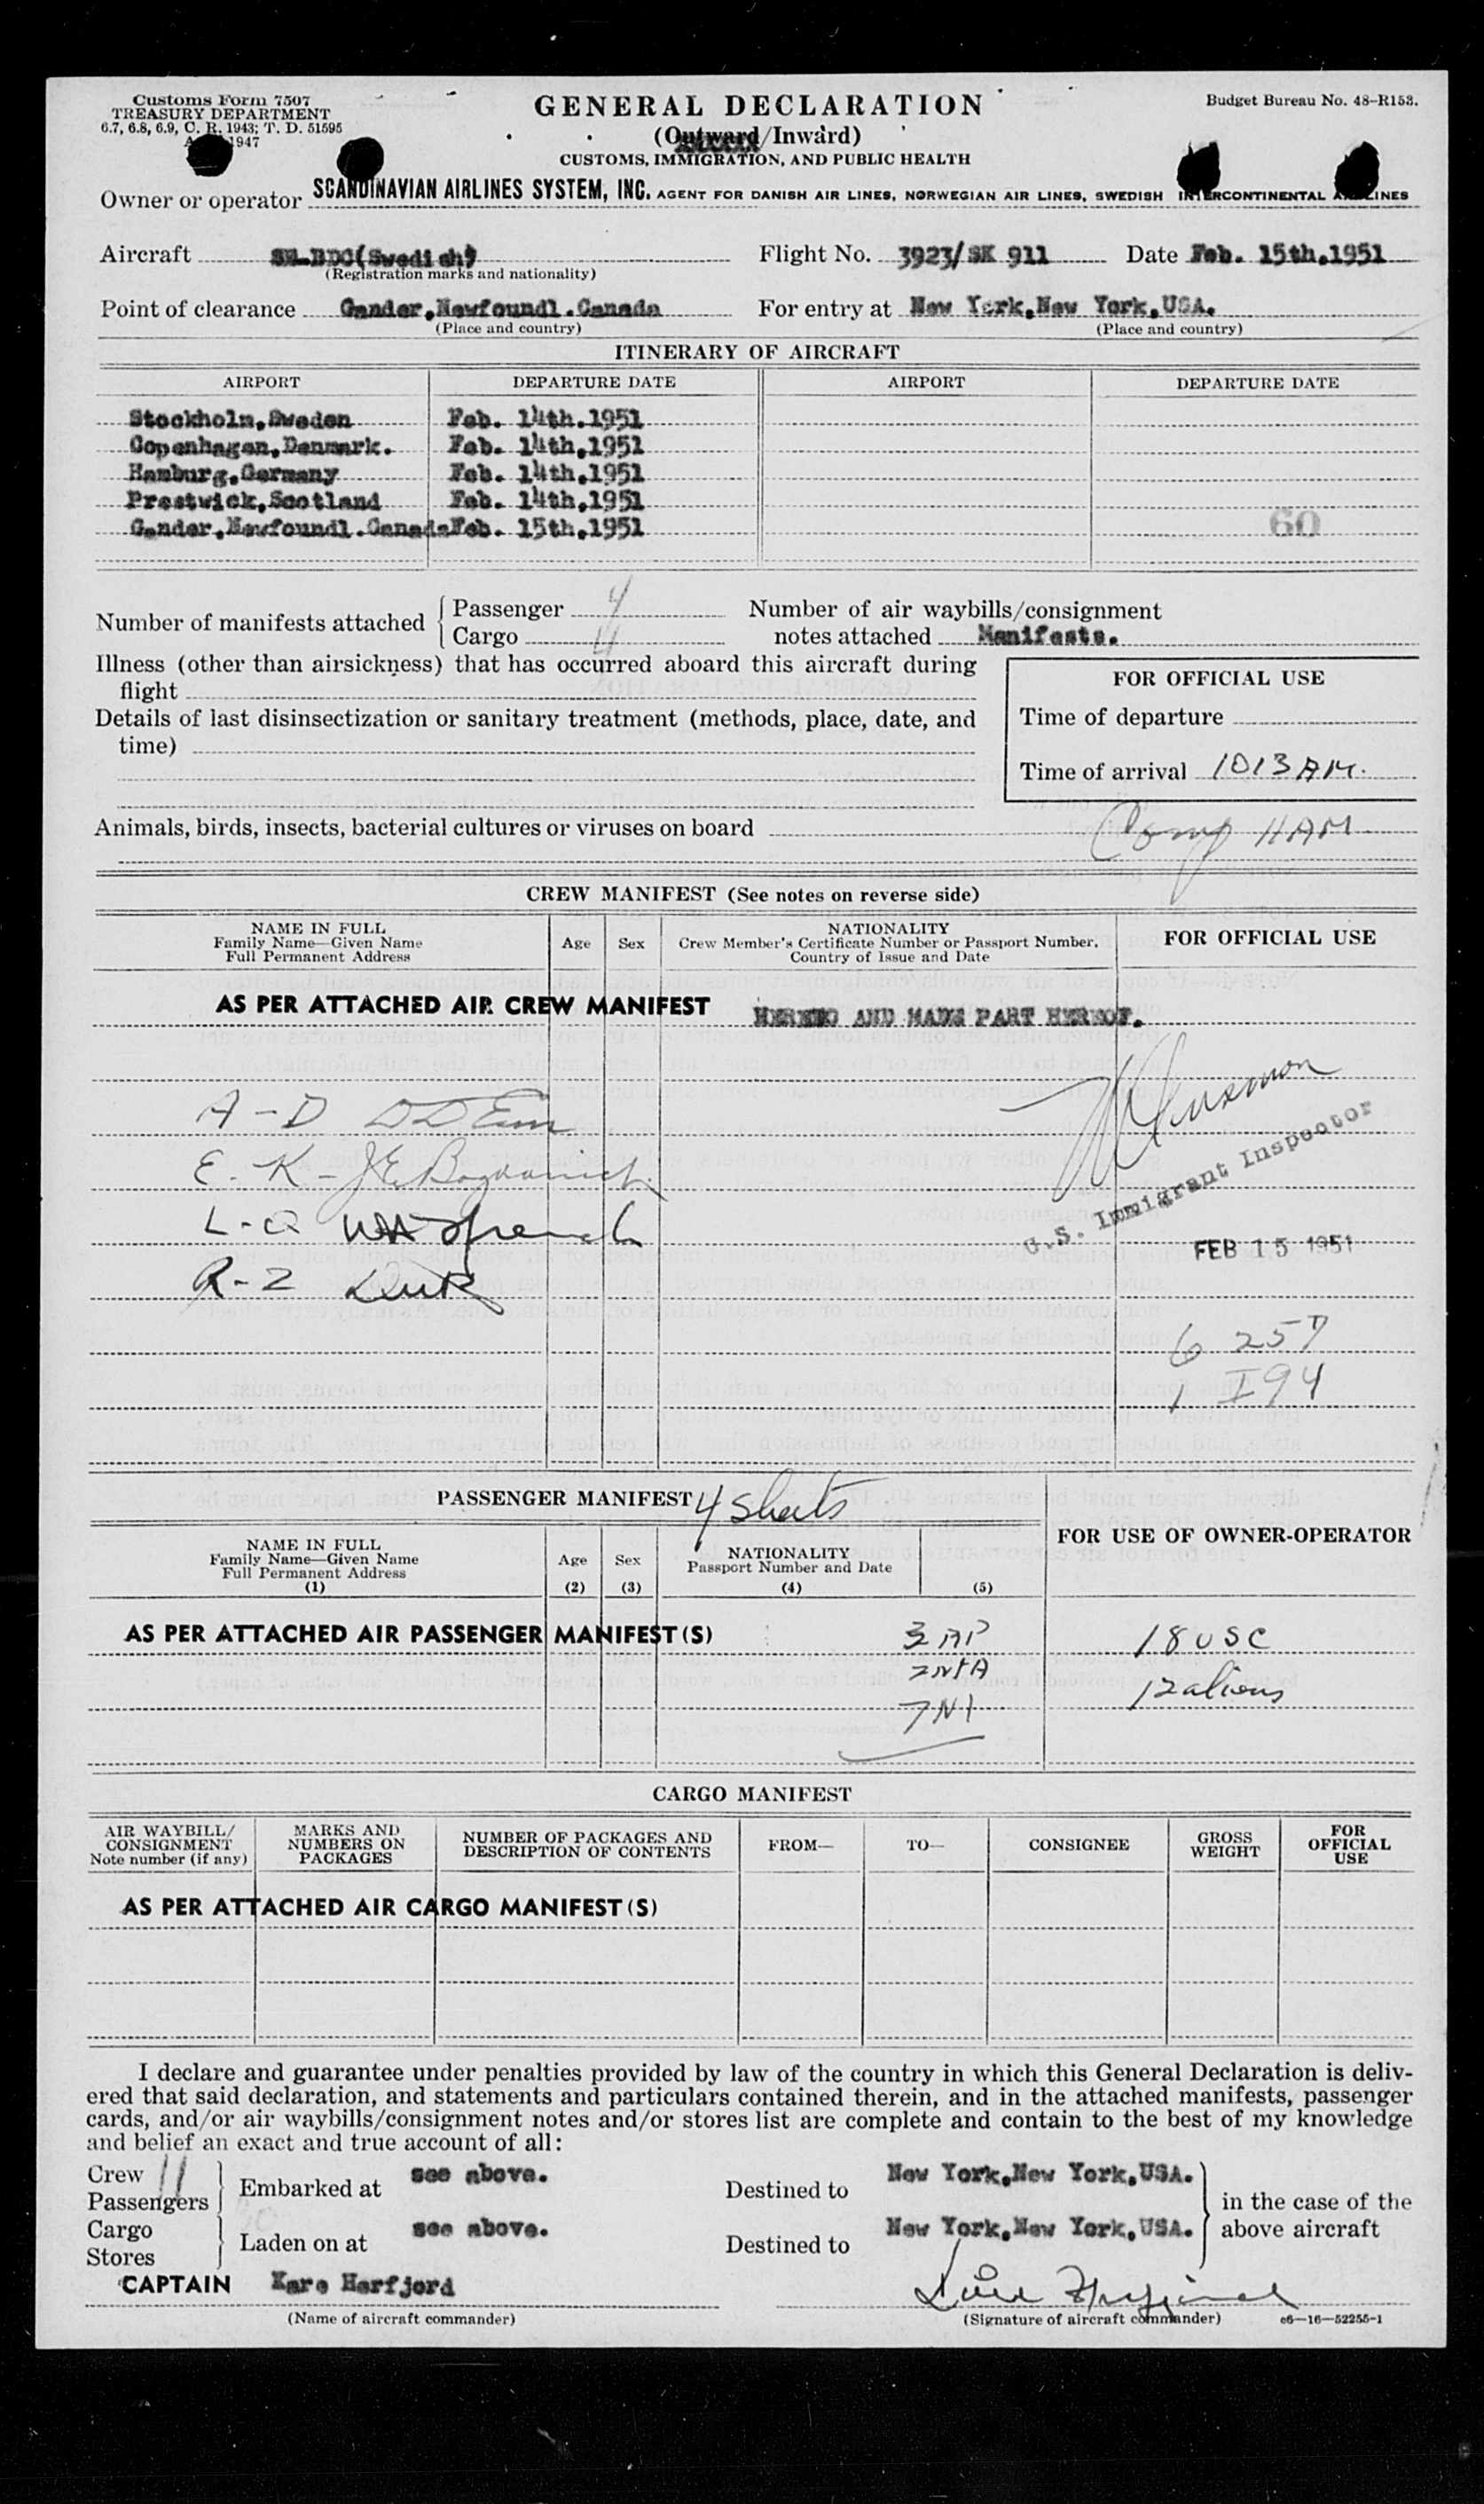 Customs Form 7507
TREASURY DEPARTMENT
6.7, 6.8, 6.9, C. R. 1943; T. D. 51595
1947
GENERAL DECLARATION
(Outward/Inward)
CUSTOMS, IMMIGRATION, AND PUBLIC HEALTH
Budget Bureau No. 48-R153.
Owner or operator SCANDINAVIAN AIRLINES SYSTEM, INC. AGENT FOR DANISH AIR LINES, NORWEGIAN AIR LINES, SWEDISH INTERCONTINENTAL AIRLINES
Aircraft SE-BDC(Swedish) Flight No. 3923/SK 911 Date Feb. 15th.1951
(Registration marks and nationality)
Point of clearance Gander,Newfoundl.Canada For entry at New York,New York,USA.
(Place and country) (Place and country)
ITINERARY OF AIRCRAFT
AIRPORT DEPARTURE DATE AIRPORT DEPARTURE DATE
Stockholm,Sweden Feb. 14th.1951
Copenhagen,Denmark. Feb. 14th,1951
Hamburg,Germany Feb. 14th,1951
Prestwick,Scotland Feb. 14th,1951
Gander,Newfoundl.Canada Feb. 15th,1951
60
Number of manifests attached { Passenger 4
Cargo 4
Number of air waybills/consignment
notes attached Manifests.
Illness (other than airsickness) that has occurred aboard this aircraft during
flight
Details of last disinsectization or sanitary treatment (methods, place, date, and
time)
FOR OFFICIAL USE
Time of departure
Time of arrival 1013 AM.
Animals, birds, insects, bacterial cultures or viruses on board
Comp 11 AM
CREW MANIFEST (See notes on reverse side)
NAME IN FULL
Family Name—Given Name
Full Permanent Address
Age Sex
NATIONALITY
Crew Member's Certificate Number or Passport Number,
Country of Issue and Date
FOR OFFICIAL USE
AS PER ATTACHED AIR CREW MANIFEST HERETO AND MADE PART HEREOF.
A - D
E. K -
L - Q
R - Z
U.S. Immigrant Inspector
FEB 15 1951
6 257
1 I94
PASSENGER MANIFEST 4 sheets
NAME IN FULL
Family Name—Given Name
Full Permanent Address
(1)
Age
(2)
Sex
(3)
NATIONALITY
Passport Number and Date
(4) (5)
FOR USE OF OWNER-OPERATOR
AS PER ATTACHED AIR PASSENGER MANIFEST(S) 3 AP 18 USC
12 aliens
7 NI
CARGO MANIFEST
AIR WAYBILL/
CONSIGNMENT
Note number (if any)
MARKS AND
NUMBERS ON
PACKAGES
NUMBER OF PACKAGES AND
DESCRIPTION OF CONTENTS
FROM— TO— CONSIGNEE
GROSS
WEIGHT
FOR
OFFICIAL
USE
AS PER ATTACHED AIR CARGO MANIFEST(S)
I declare and guarantee under penalties provided by law of the country in which this General Declaration is deliv-
ered that said declaration, and statements and particulars contained therein, and in the attached manifests, passenger
cards, and/or air waybills/consignment notes and/or stores list are complete and contain to the best of my knowledge
and belief an exact and true account of all:
Crew 11
Passengers
Embarked at see above. Destined to New York,New York,USA.
Cargo
Stores
Laden on at see above. Destined to New York,New York,USA.
in the case of the
above aircraft
CAPTAIN Kare Herfjord
(Name of aircraft commander) (Signature of aircraft commander) c6—16—52255-1